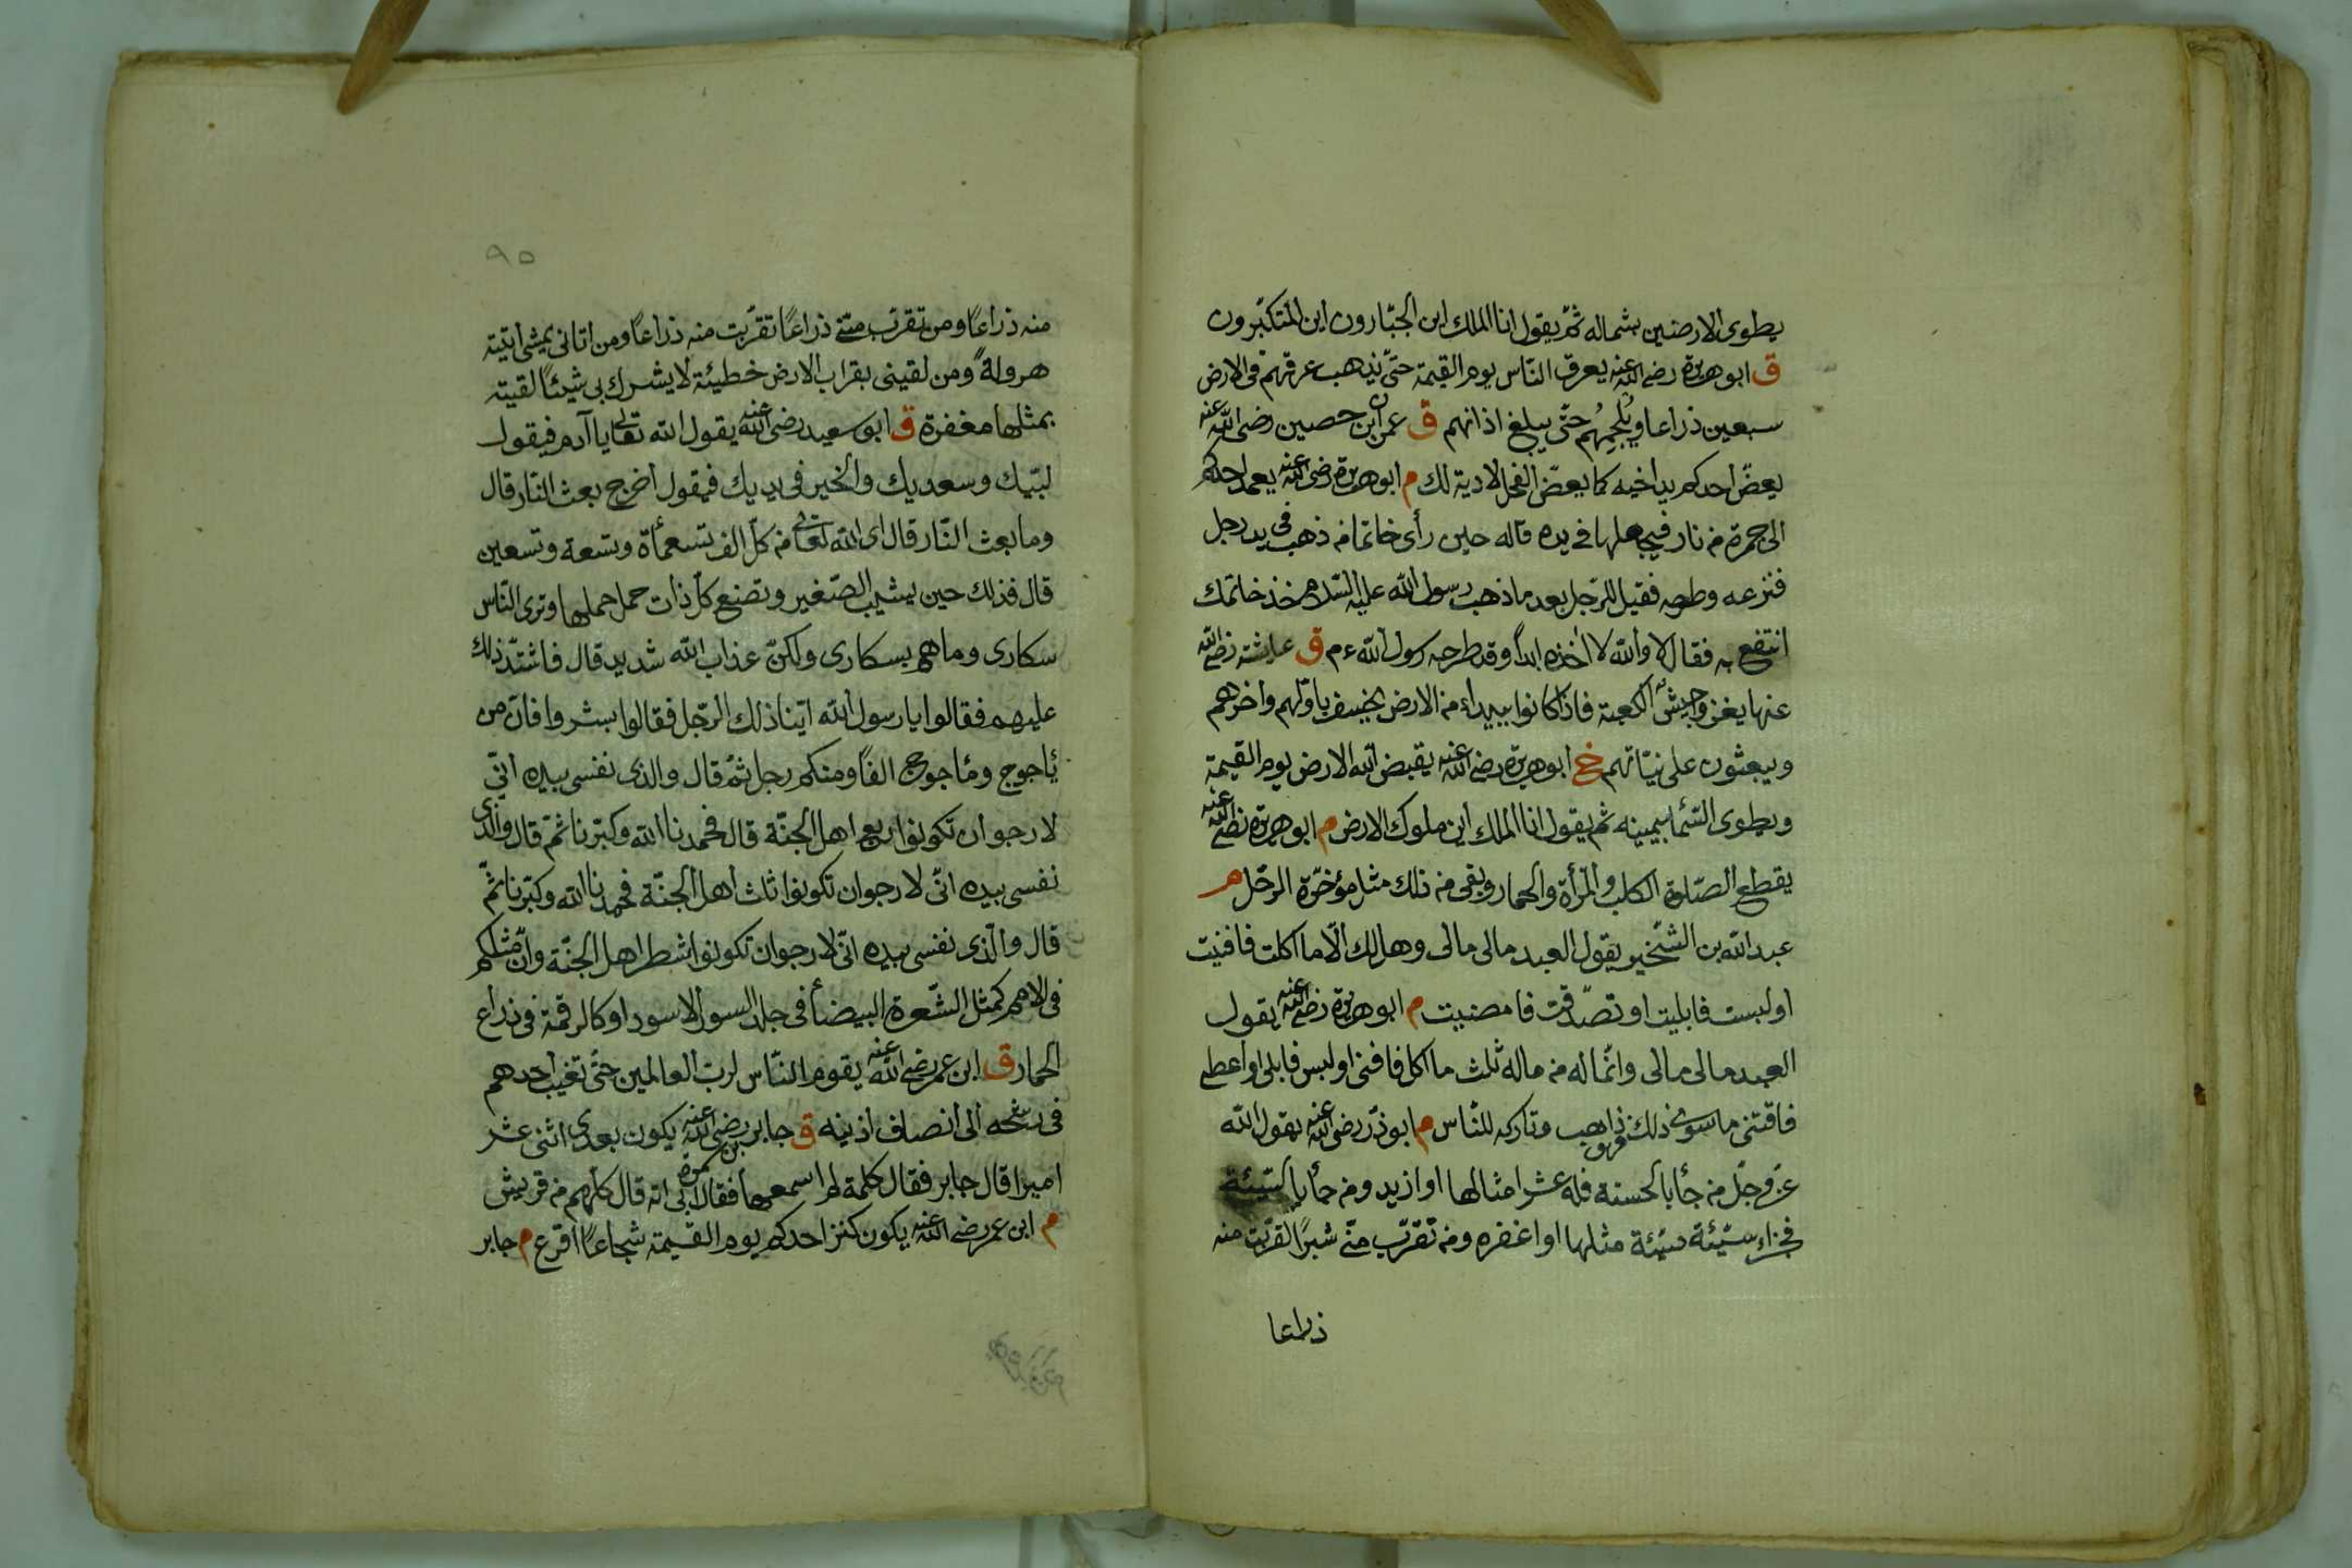 يطوى الارضين بشماله ثمّ يقول انا الملك اين الجبّارون اين المتكبّرون
ق ابو هريرة رضى الله عنه يعرق النّاس يوم القيمة حتّى يذهب عرقهم فى الارض
سبعين ذراعا ويُلجِمُهم حتّى يبلغ اذانهم ق عمران ابن حصين رضى الله عنه
يعضّ احدكم يد اخيه كما يعضّ الفحل لا دية لك م ابو هريرة رضى الله عنه يعمد احدكم
الى جمرة من نار فيجعلها فى يده قاله حين رأى خاتما من ذهب فى يد رجل
فنزعه وطرحه فقيل للرّجل بعد ما ذهب رسول الله عليه السّلام خذ خاتمك
انتفع به فقال لا والله لا اخذه ابداً وقد طرحه رسول الله ءم ق عايشة رضى الله
عنها يغزو جيش الكعبة فاذا كانوا ببيداء من الارض يخسف باوّلهم واخرهم
ويبعثون على نيّاتهم خ ابو هريرة رضى الله عنه يقبض الله الارض يوم القيمة
ويطوى السّماء بيمينه ثم يقول انا الملك اين ملوك الارض م ابو هريرة رضى الله عنه
يقطع الصّلوة الكلب والمرأة والحمار وبقى من ذلك مثل مؤخّرة الرحّل م
عبد الله بن الشّخير يقول العبد مالى مالى وهل لك الّا ما اكلت فافنيت
او لبست فابليت او تصدّقت فامضيت م ابو هريرة رضى الله عنه يقول
العبد مالى مالى وانّما له من ماله ثلث ما اكل فافنى او لبس فابلى او اعطى
فاقتنى ما سوى ذلك فهو ذاهب وتاركه للنّاس م ابو ذرّ رضى الله عنه يقول الله
عزّ وجلّ من جأ بالحسنة فله عشر امثالها او ازيد ومن جأ بالسّيّئة
فجزاء سيّئة سيّئة مثلها او اغفره ومن تقرّب منّى شبرًا تقرّبت منه
ذراعا
٩٥
منه ذراعًا ومن تقرّب منّى ذراعًا تقرّبت منه ذراعًا ومن اتانى يمشى اتيته
هرولةً ومن لقينى بقراب الارض خطيئة لا يشرك بى شيئًا لقيته
بمثلها مغفرة ق ابو سعيد رضى الله عنه يقول الله تعالى يا آدم فيقول
لبّيك وسعديك والخير فى يديك فيقول اخرج بعث النّار قال
وما بعث النّار قال اى الله تعالى من كلّ الف تسعمأة وتسعة وتسعين
قال فذلك حين يشيب الصّغير وتضع كلّ ذات حمل حملها وترى النّاس
سكارى وما هم بسكارى ولكنّ عذاب الله شديد قال فاشتدّ ذلك
عليهم فقالوا يا رسول الله ايّنا ذلك الرّجل فقالوا بشروا فانّ من
يأجوج ومأجوج الفًا ومنكم رجل ثمّ قال والذى نفسى بيده انّى
لارجوان تكونوا ربع اهل الجنّة قال فحمدنا الله وكبّرنا ثمّ قال والّذى
نفسى بيده انّى لارجوان تكونوا ثلث اهل الجنّة فحمدنا الله وكبّرنا ثمّ
قال والّذى نفسى بيده انّى لارجوان تكونوا شطر اهل الجنّة وانّ مثلكم
فى الامم كمثل الشّعرة البيضأ فى جلد السور الاسود او كالرقمة فى ذراع
الحمار ق ابن عمر رضى الله عنه يقوم النّاس لربّ العالمين حتّى تغيب احدهم
فى رشحه الى انصاف اذنيه ق جابر بن سمرة رضى الله عنه يكون بعدى اثنى عشر
اميرا قال جابر فقال كلمة لم اسمعها فقال ابى انه قال كلّهم من قريش
م ابن عمر رضى الله عنه يكون كنز احدكم يوم القيمة شجاعًا اقرع م جابر